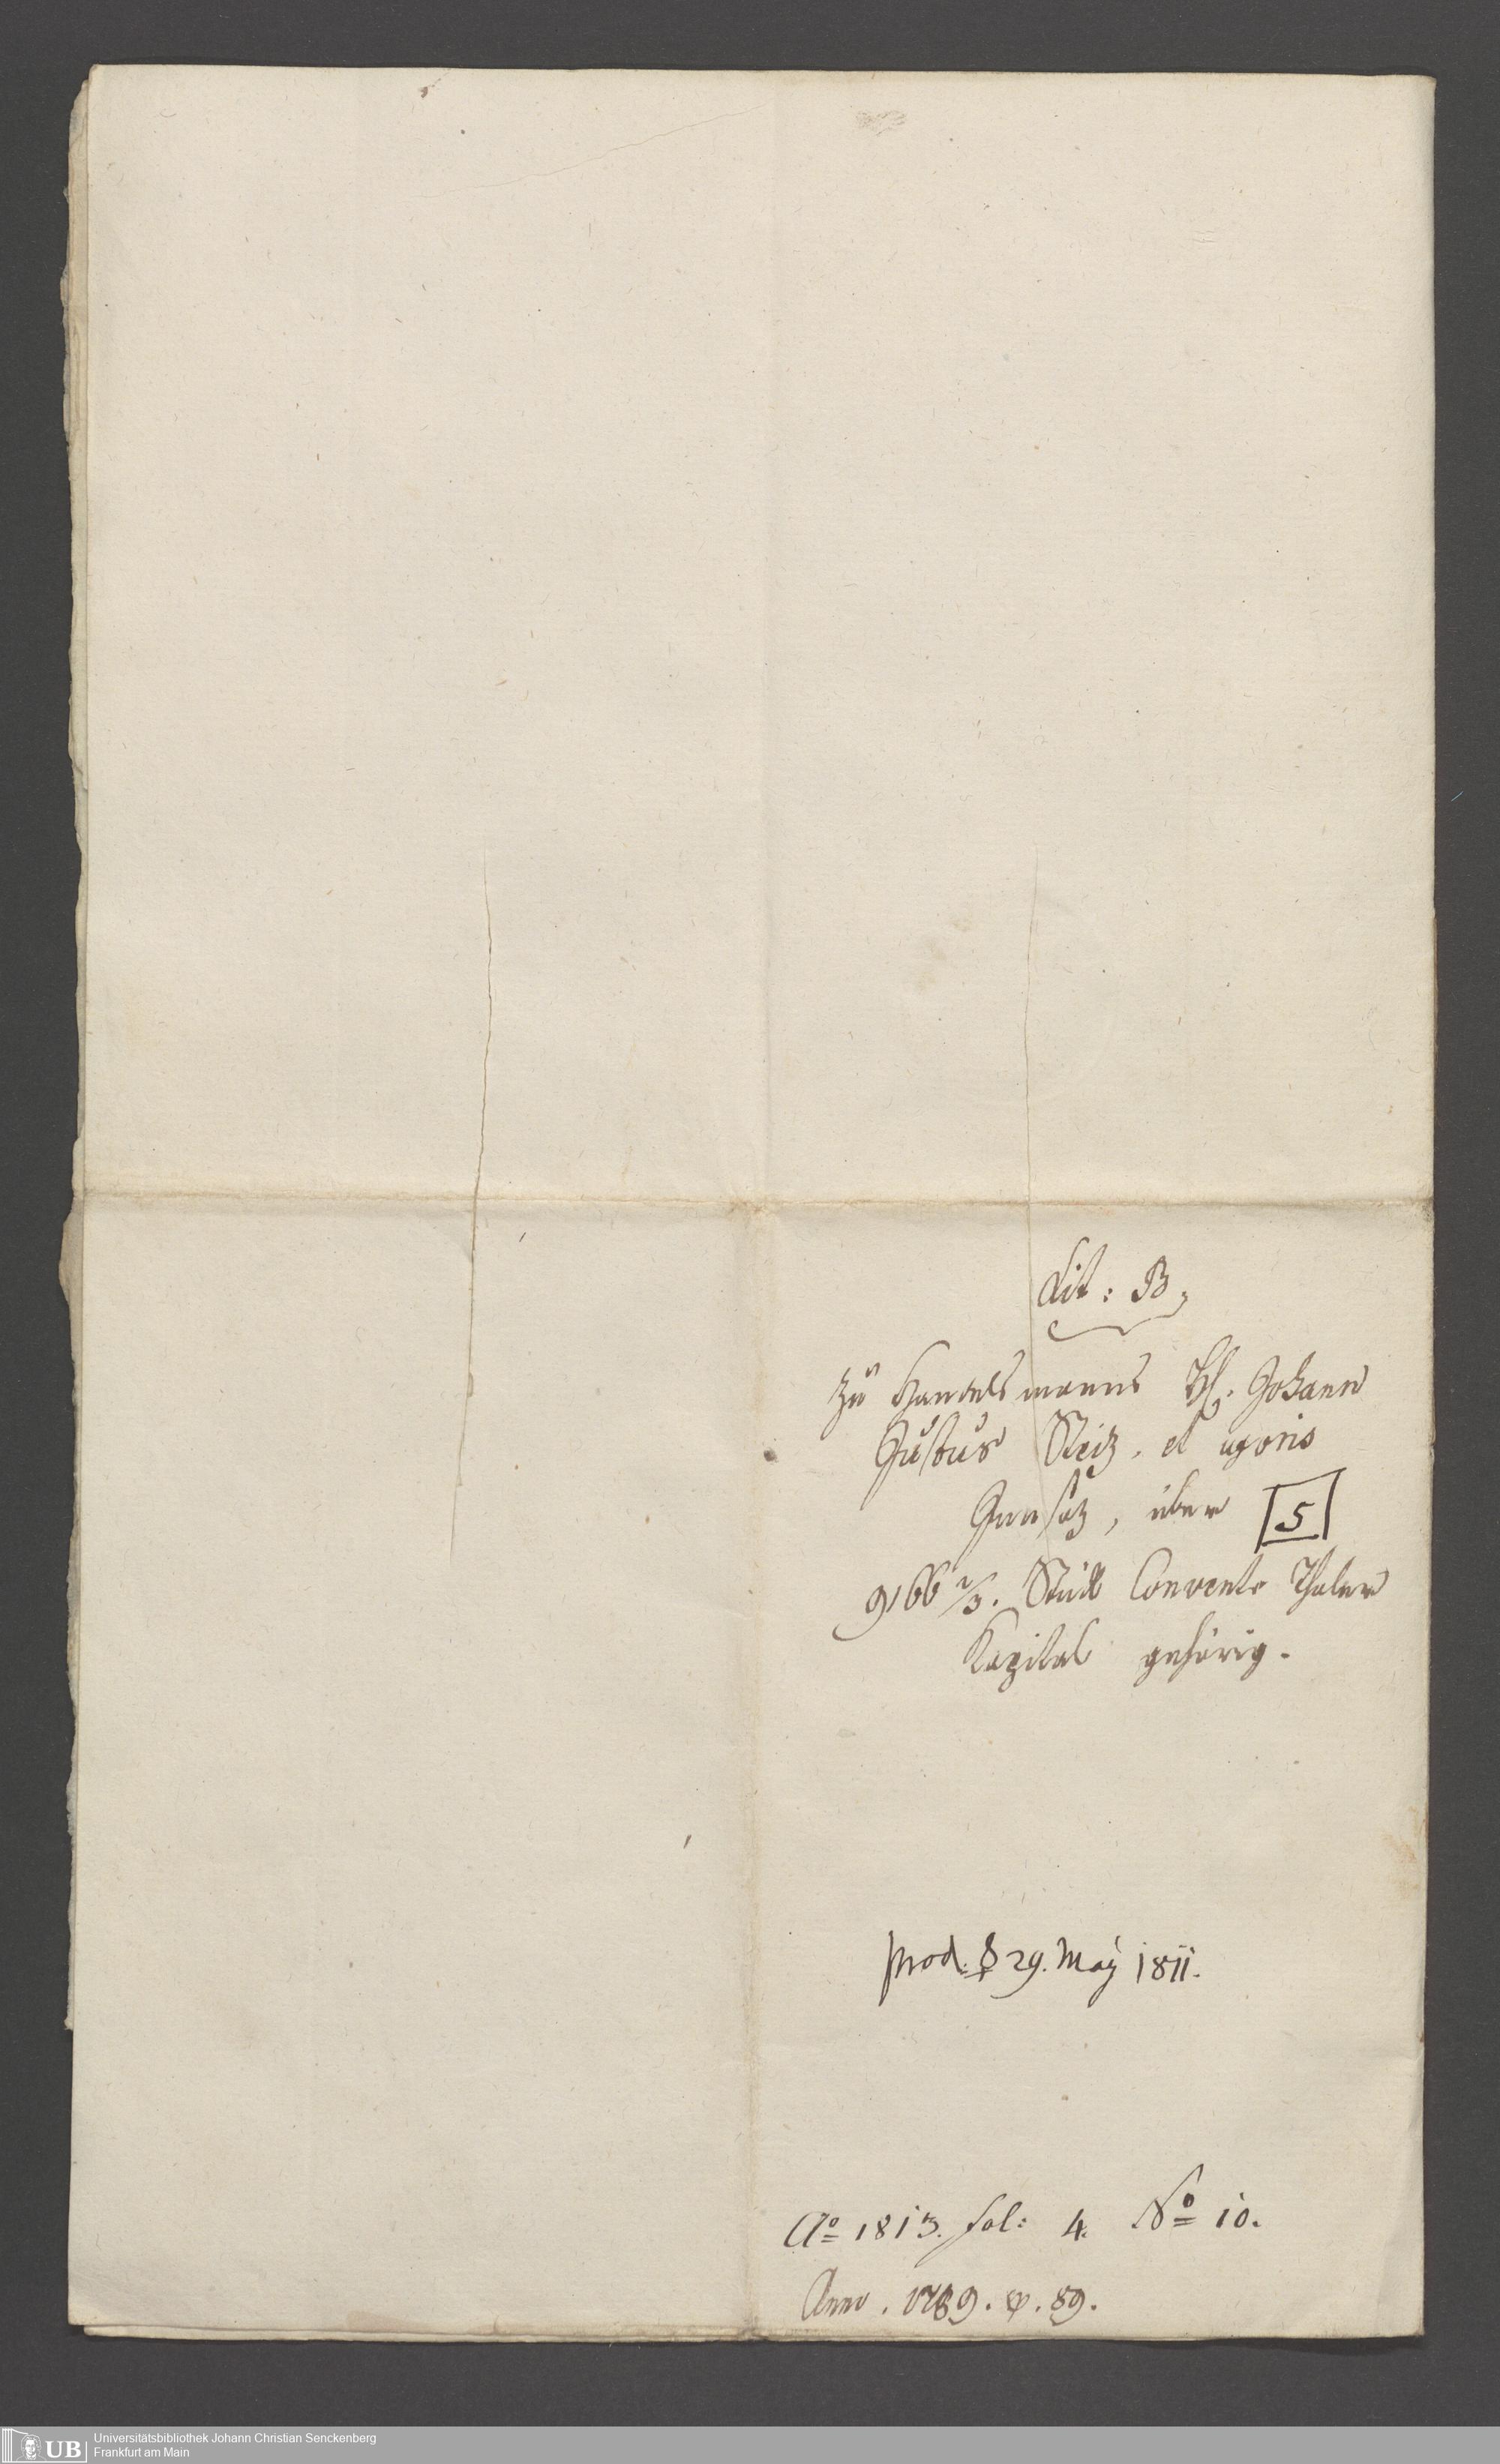 Lit: B,
zu Handelsmanns H. Johann
Justus Steiz, et uxoris
Insaz, über [5]
9166 2/3. Stück Convents Thaler
Kapital gehörig.
prod. ☿ 29. May 1811.
Ao 1813. fol: 4. No 10.
Anno. 1789. 89.
Universitätsbibliothek Johann Christian Senckenberg
Frankfurt am Main
UB